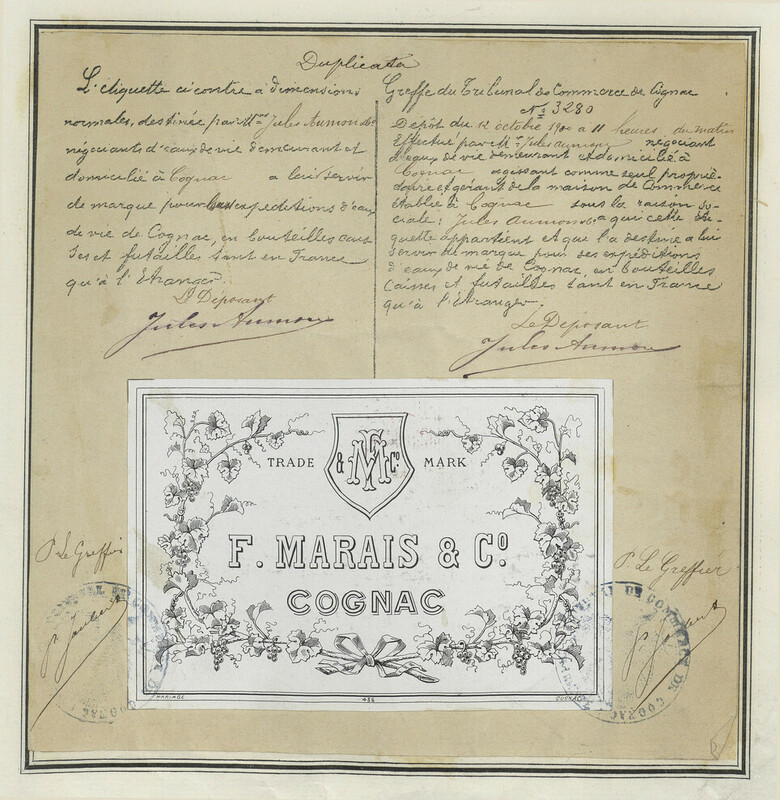 Duplicata
L'étiquette ci contre a dimensions
normales, destinée par Mr Jules Aumon &
négociants d'eaux de vie demeurant et
domicilié à Cognac a lui servir
de marque pour expéditions d'eaux
de vie de Cognac, en bouteilles cais
ses et futailles tant en France
qu'à l'Etranger.
Le Déposant
Jules Aumon
Greffe du Tribunal de Commerce de Cognac
No 3280
Dépôt du 12 octobre 1900 a 11 heures du matin
Effectué par Mr Jules Aumon négociant
d'eaux de vie demeurant et domicilié à
Cognac agissant comme seul proprié-
taire et gérant de la maison de Commerce
établie à Cognac sous la raison so-
ciale: Jules Aumon & a qui cette éti-
quette appartient et que l'a destiné a lui
servir de marque pour ses expéditions
d'eaux de vie de Cognac, en bouteilles
Caisses et futailles tant en France
qu'à l'étranger.
Le Déposant
Jules Aumon
TRADE & MC Co MARK
F. MARAIS & Co.
COGNAC
MARIAGE 436 COGNAC
P. Le Greffier
P. Le Greffier
TRIBUNAL DE COMMERCE DE COGNAC
TRIBUNAL DE COMMERCE DE COGNAC